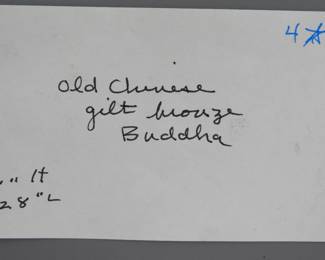 4
Old Chinese
gilt bronze
Buddha
" H
28" L